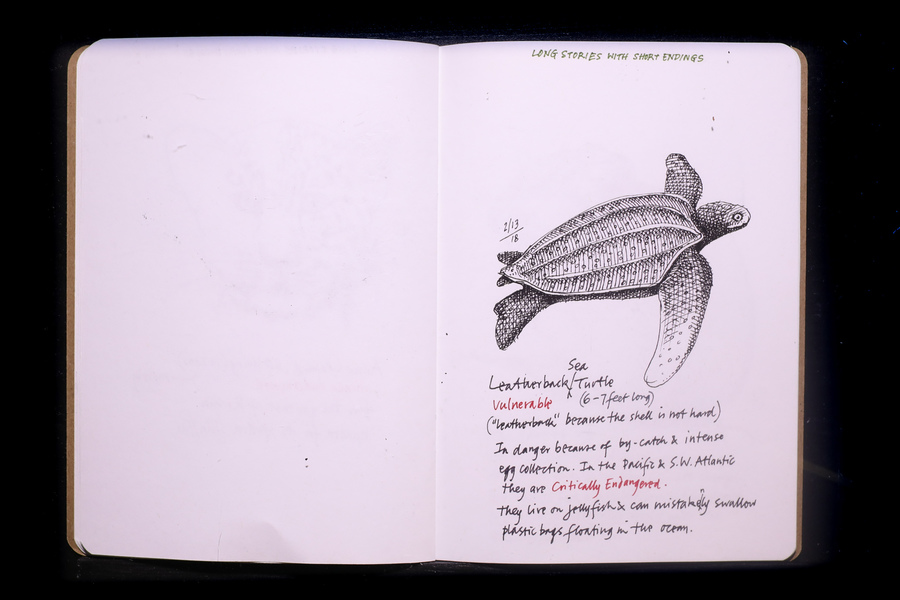 LONG STORIES WITH SHORT ENDINGS
2/13
18
Sea
Leatherback/Turtle
Vulnerable (6-7 feet long)
("leatherback" because the shell is not hard)
In danger because of by-catch & intense
egg collection. In the Pacific & S.W. Atlantic
they are Critically Endangered.
They live on jellyfish & can mistakenly swallow
plastic bags floating in the ocean.